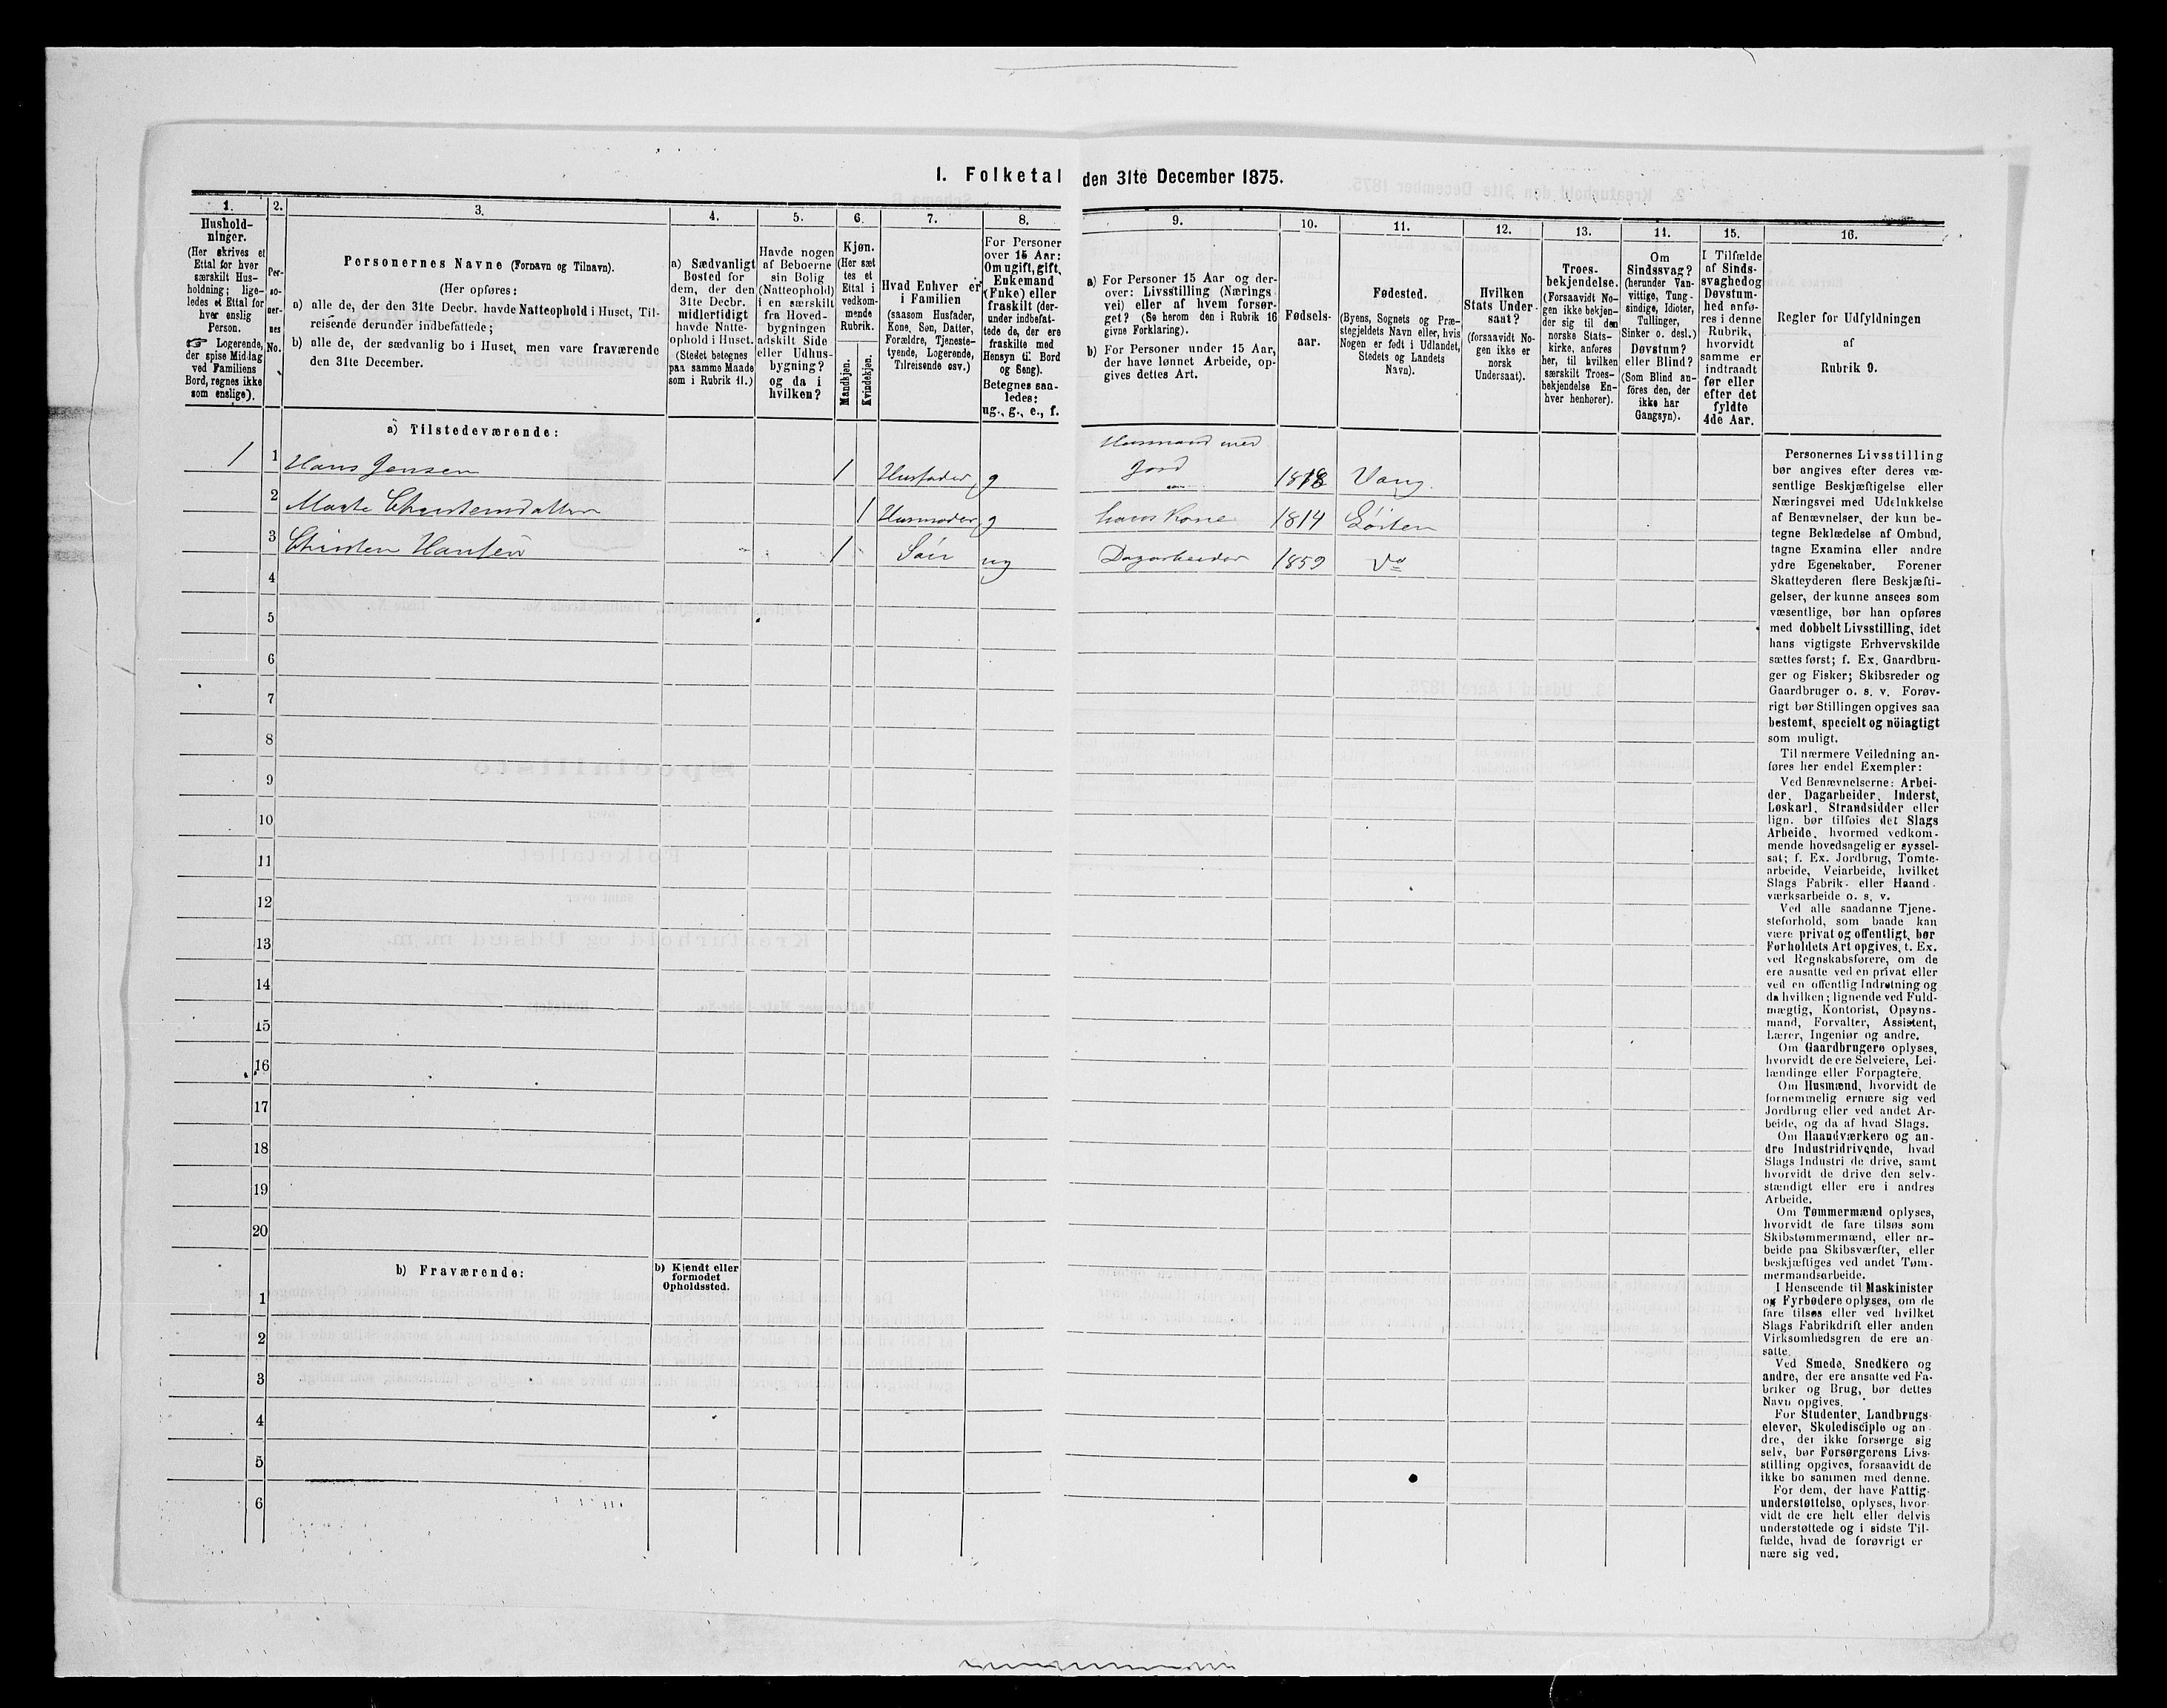 I. Folketal den 31te December 1875.
1. 2. 3. 4. 5. 6. 7. 8. 9. 10. 11. 12. 13. 14. 15. 16.
Hushold-
ninger.
(Her skrives et
Ettal for hver
særskilt Hus-
holdning; lige-
ledes et Ettal for
hver enslig
Person.
☞ Logerende,
der spise Middag
ved Familiens
Bord, regnes ikke
som enslige).
Per-
so-
ner-
nes
No.
Personernes Navne (Fornavn og Tilnavn).
(Her opføres:
a) alle de, der den 31te Decbr. havde Natteophold i Huset, Til-
reisende derunder indbefattede;
b) alle de, der sædvanlig bo i Huset, men vare fraværende
den 31te December.
a) Sædvanligt
Bosted for
dem, der den
31te Decbr.
midlertidigt
havde Natte-
ophold i Huset.
(Stedet betegnes
paa samme Maade
som i Rubrik 11.)
Havde nogen
af Beboerne
sin Bolig
(Natteophold)
i en særskilt
fra Hoved-
bygningen
adskilt Side
eller Udhus-
bygning?
og da i
hvilken?
Kjøn.
(Her sæt
tes et
Ettal i
vedkom-
mende
Rubrik.
Mandkjøn.
Kvindekjøn.
Hvad Enhver er
i Familien
(saasom Husfader,
Kone, Søn, Datter,
Forældre, Tjeneste-
tyende, Logerende,
Tilreisende osv.)
For Personer
over 15 Aar:
Om ugift, gift,
Enkemand
(Enke) eller
fraskilt (der-
under indbefat-
tede de, der ere
fraskilte med
Hensyn til Bord
og Seng).
Betegnes saa-
ledes:
ug., g., e., f.
a) For Personer 15 Aar og der-
over: Livsstilling (Nærings
vei) eller af hvem forsør-
get? (Se herom den i Rubrik 16
givne Forklaring).
b) For Personer under 15 Aar,
der have lønnet Arbeide, op-
gives dettes Art.
Fødsels-
aar.
Fødested.
(Byens, Sognets og Præ-
stegjeldets Navn eller, hvis
Nogen er født i Udlandet,
Stedets og Landets
Navn).
Hvilken
Stats Under-
saat?
(forsaavidt No-
gen ikke er
norsk
Undersaat).
Troes-
bekjendelse.
(Forsaavidt No-
gen ikke bekjen-
der sig til den
norske Stats-
kirke, anføres
her, til hvilken
særskilt Troes-
bekjendelse En-
hver henhører).
Om
Sindssvag?
(herunder Van-
vittige, Tung-
sindige, Idioter,
Tullinger,
Sinker o. desl.)
Døvstum?
eller Blind?
(Som Blind an-
föres den, der
ikke har
Gangsyn).
I Tilfælde
af Sinds-
svaghed og
Døvstum-
hed anfø-
res i denne
Rubrik,
hvorvidt
samme er
indtraadt
før eller
efter det
fyldte
4de Aar.
Regler for Udfyldningen
af
Rubrik 9.
a) Tilstedeværende:
1 1 Hans Jensen 1 Husfader g Husmand med Jord 1818 Vang.
2 Marte Christensdatter 1 Husmoder g hans Kone 1814 Løiten
3 Christen Hansen 1 Søn ug Dagarbeider 1859 do
4
5
6
7
8
9
10
11
12
13
14
15
16
17
18
19
20
b) Fraværende:
b) Kjendt eller
formodet
Opholdssted.
1
2
3
4
5
6
Personernes Livsstilling
bør angives efter deres væ-
sentlige Beskjæftigelse eller
Næringsvei med Udelukkelse
af Benævnelser, der kun be-
tegne Beklædelse af Ombud,
tagne Examina eller andre
ydre Egenskaber. Forener
Skatteyderen flere Beskjæfti-
gelser, der kunne ansees som
væsentlige, bør han opføres
med dobbelt Livsstilling, idet
hans vigtigste Erhvervskilde
sættes først; f. Ex. Gaardbru-
ger og Fisker; Skibsreder og
Gaardbruger o. s. v. Forøv-
rigt bør Stillingen opgives saa
bestemt, specielt og nöiagtigt
som muligt.
Til nærmere Veiledning an-
føres her endel Exempler:
Ved Benævnelserne: Arbei-
der, Dagarbeider, Inderst,
Løskarl, Strandsidder eller
lign. bør tilføies det Slags
Arbeide, hvormed vedkom-
mende hovedsagelig er syssel-
sat; f. Ex. Jordbrug, Tomte-
arbeide, Veiarbeide, hvilket
Slags Fabrik- eller Haand-
værksarbeide o. s. v.
Ved alle saadanne Tjene-
steforhold, som baade kan
være privat og offentligt, bør
Forholdets Art opgives, f. Ex.
ved Regnskabsførere, om de
ere ansatte ved en privat eller
ved en offentlig Indretning og
da hvilken; lignende ved Fuld-
mægtig, Kontorist, Opsyns-
mand, Forvalter, Assistent,
Lærer, Ingeniør og andre.
Om Gaardbrugere oplyses,
hvorvidt de ere Selveiere, Lei-
lændinge eller Forpagtere.
Om Husmænd, hvorvidt de
fornemmelig ernære sig ved
Jordbrug eller ved andet Ar-
beide, og da af hvad Slags.
Om Haandværkere og an-
dre Industridrivende, hvad
Slags Industri de drive, samt
hvorvidt de drive den selv-
stændigt eller ere i andres
Arbeide.
Om Tømmermænd oplyses,
hvorvidt de fare tilsøs som
Skibstømmermænd, eller ar-
beide paa Skibsværfter, eller
beskjæftiges ved andet Tøm-
mermandsarbeide.
I Henseende til Maskinister
og Fyrbødere oplyses, om de
fare tilsøs eller ved hvilket
Slags Fabrikdrift eller anden
Virksomhedsgren de ere an-
satte.
Ved Smede, Snedkere og
andre, der ere ansatte ved Fa-
briker og Brug, bør dettes
Navn opgives.
For Studenter, Landbrugs-
elever, Skoledisciple og an-
dre, der ikke forsørge sig
selv, bør Forsørgerens Livs-
stilling opgives, forsaavidt de
ikke bo sammen med denne.
For dem, der have Fattig-
understøttelse, oplyses, hvor-
vidt de ere helt eller delvis
understøttede og i sidste Til-
fælde, hvad de forøvrigt er
nære sig ved.